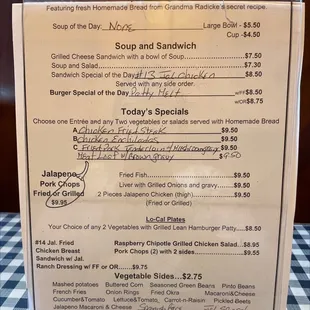 Featuring fresh Homemade Bread from Grandma Radicke's secret recipe.
Soup of the Day: None Large Bowl - $5.50
Cup -$4.50
Soup and Sandwich
Grilled Cheese Sandwich with a bowl of Soup $7.50
Soup and Salad $7.30
Sandwich Special of the Day #13 Jal Chicken $8.50
Served with any side order.
Burger Special of the Day Patty Melt w/FF $8.50
w/OR $8.75
Today's Specials
Choose one Entrée and any Two vegetables or salads served with Homemade Bread
A Chicken Fried Steak $9.50
B Chicken Enchiladas $9.50
C Fried Pork Tenderloin $9.50
Meat Loaf w/ Brown gravy $9.50
Jalapeno Fried Fish $9.50
Pork Chops Liver with Grilled Onions and gravy $9.50
Fried or Grilled 2 Pieces Jalapeno Chicken (thigh) $9.50
$9.95 (Fried or Grilled)
Lo-Cal Plates
Your Choice of any 2 Vegetables with Grilled Lean Hamburger Patty $8.50
#14 Jal. Fried Raspberry Chipotle Grilled Chicken Salad $8.95
Chicken Breast Pork Chops (2) with 2 sides $9.55
Sandwich w/ Jal.
Ranch Dressing w/ FF or OR $9.75
Vegetable Sides...$2.75
Mashed potatoes Buttered Corn Seasoned Green Beans Pinto Beans
French Fries Onion Rings Fried Okra Macaroni&Cheese
Cucumber&Tomato Lettuce&Tomato Carrot-n-Raisin Pickled-Beets
Jalapeno Macaroni & Cheese